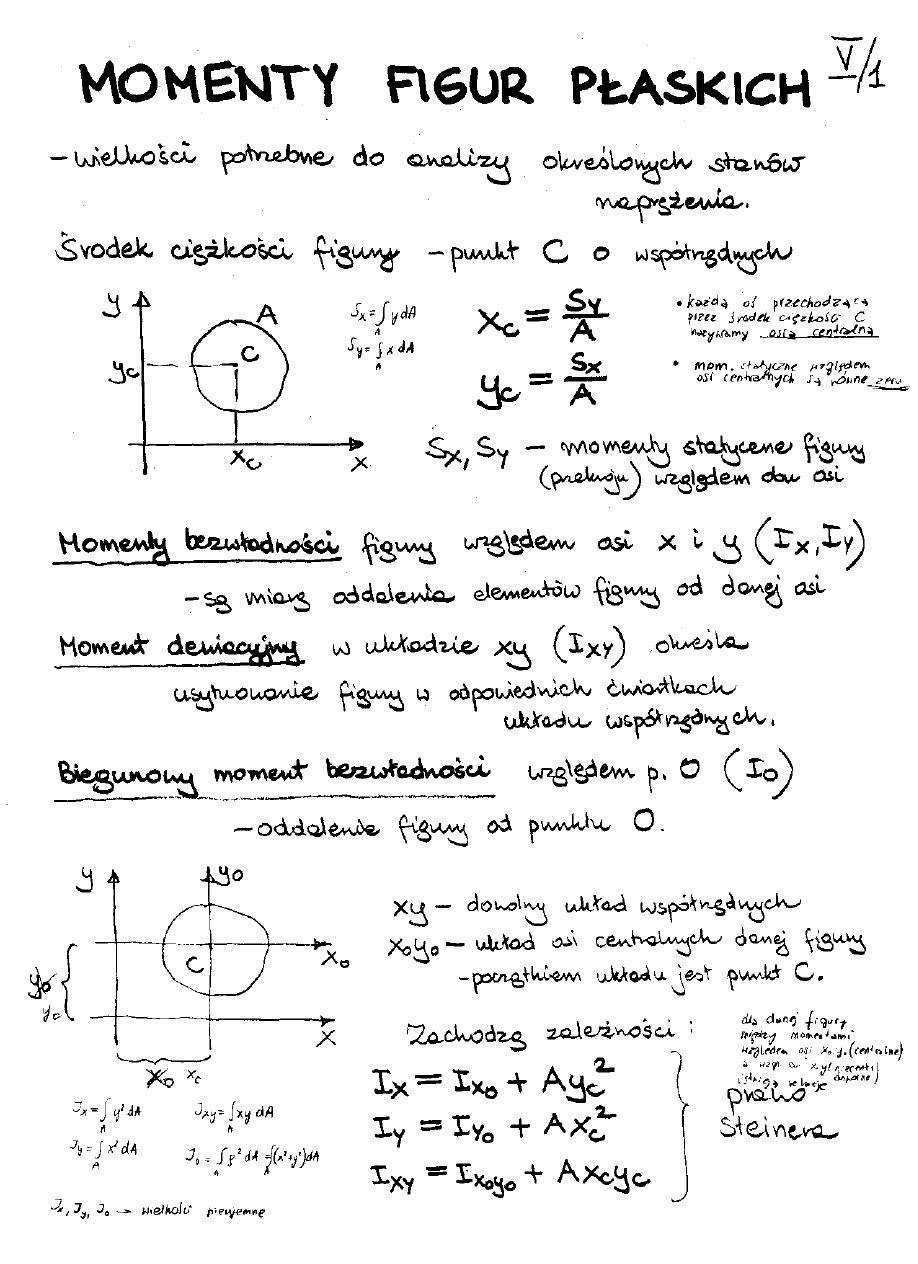 V/1
MOMENTY FIGUR PŁASKICH
– wielkości potrzebne do analizy określonych stanów
naprężenia.
Środek ciężkości figury – punkt C o współrzędnych
y
A
C
yc
xc
x
Sx = ∫ y dA
A
Sy = ∫ x dA
A
xc = Sy/A
yc = Sx/A
• każda oś przechodząca
przez środek ciężkości C
nazywamy osią centralną
• mom. statyczne względem
osi centralnych są równe zeru
Sx, Sy – momenty statyczne figury
(przekroju) względem osi
Momenty bezwładności figury względem osi x i y (Ix, Iy)
– są miarą oddalenia elementów figury od danej osi
Moment dewiacyjny w układzie xy (Ixy) określa
usytuowanie figury w odpowiednich ćwiartkach
układu współrzędnych.
Biegunowy moment bezwładności względem p. O (Io)
– oddalenie figury od punktu O.
y
yo
C
xo
yo
yc
x
xo
xc
xy – dowolny układ współrzędnych
xoyo – układ osi centralnych danej figury
– początkiem układu jest punkt C.
Zachodzą zależności:
Ix = Ixo + Ayc²
Iy = Iyo + Axc²
Ixy = Ixoyo + Axcyc
dla danej figury
między momentami
względem osi xo yo (centralne)
prawo
Steinera
Jx = ∫ y² dA
A
Jxy = ∫ xy dA
A
Jy = ∫ x² dA
A
Jo = ∫ ρ² dA = ∫(x²+y²)dA
A
Jx, Jy, Jo → wielkości nieujemne